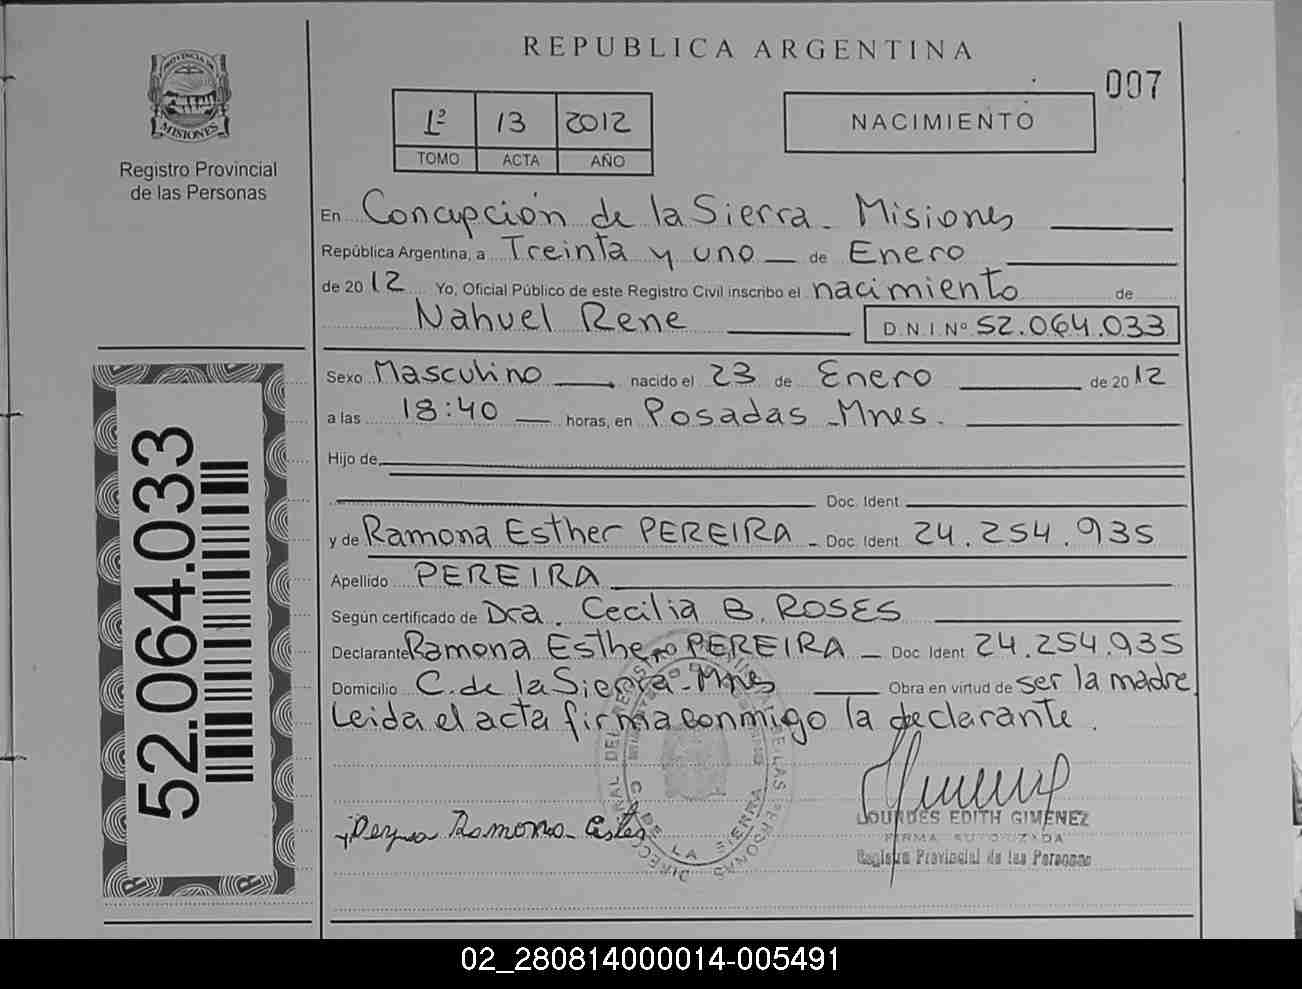 PROVINCIA DE
MISIONES
Registro Provincial
de las Personas
REPUBLICA ARGENTINA
007
1º 13 2012
TOMO ACTA AÑO
NACIMIENTO
En Concepción de la Sierra - Misiones
República Argentina, a Treinta y uno de Enero
de 2012 Yo, Oficial Público de este Registro Civil inscribo el nacimiento de
Nahuel Rene D.N.I.Nº 52.064.033
Sexo Masculino nacido el 23 de Enero de 2012
a las 18:40 horas, en Posadas - Mnes.
Hijo de
Doc. Ident.
y de Ramona Esther PEREIRA - Doc. Ident. 24.254.935
Apellido PEREIRA
Según certificado de Dra. Cecilia B. ROSES
Declarante Ramona Esther PEREIRA - Doc. Ident 24.254.935
Domicilio C. de la Sierra - Mnes Obra en virtud de ser la madre
Leida el acta firma conmigo la declarante.
Ramona
C. DE LA SIERRA
LOURDES EDITH GIMENEZ
FIRMA AUTORIZADA
Registro Provincial de las Personas
52.064.033
02_280814000014-005491